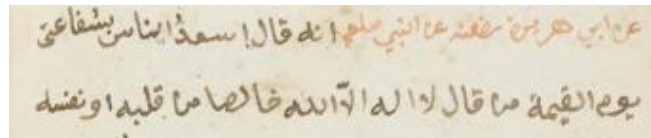 عن ابي هريرة رضعنه عن النبي صلعم انه قال اسعد الناس بشفاعتى
يوم القيمة من قال لا اله الا الله خالصا من قلبه او نفسه